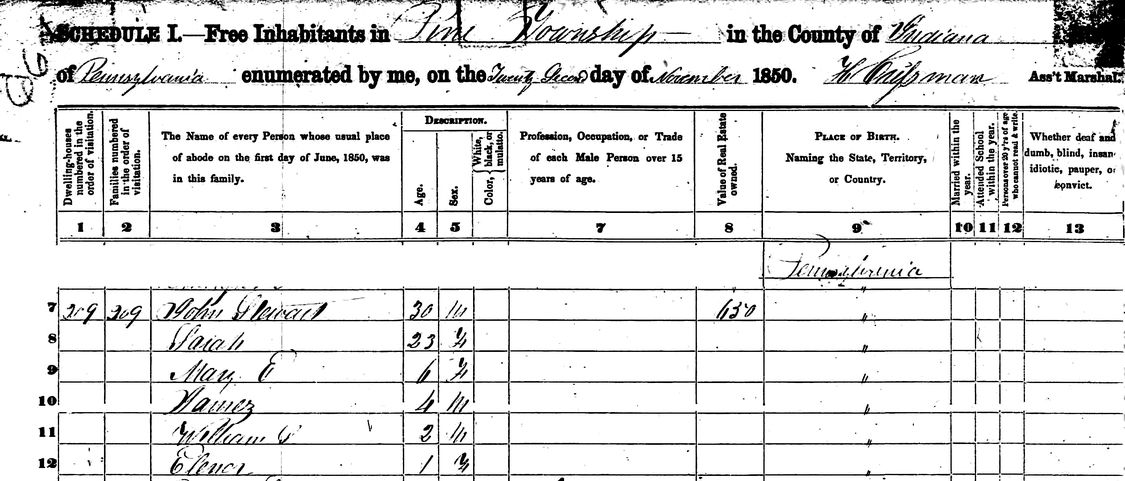 SCHEDULE I.—Free Inhabitants in Pine Township in the County of Indiana
of Pennsylvania enumerated by me, on the Twenty Second day of November 1850. Ass't Marshal.
DESCRIPTION.
Dwelling-houses numbered in the order of visitation.
Families numbered in the order of visitation.
The Name of every Person whose usual place of abode on the first day of June, 1850, was in this family.
Age.
Sex.
Color, White, black, or mulatto.
Profession, Occupation, or Trade of each Male Person over 15 years of age.
Value of Real Estate owned.
PLACE OF BIRTH. Naming the State, Territory, or Country.
Married within the year.
Attended School within the year.
Persons over 20 y'rs of age who cannot read & write.
Whether deaf and dumb, blind, insane idiotic, pauper, or convict.
1 2 3 4 5 6 7 8 9 10 11 12 13
Pennsylvania
7 309 309 John Stewart 30 M 650 "
8 Sarah 23 F "
9 Mary E 6 F "
10 James 4 M "
11 William 2 M "
12 Elenor 1 F "